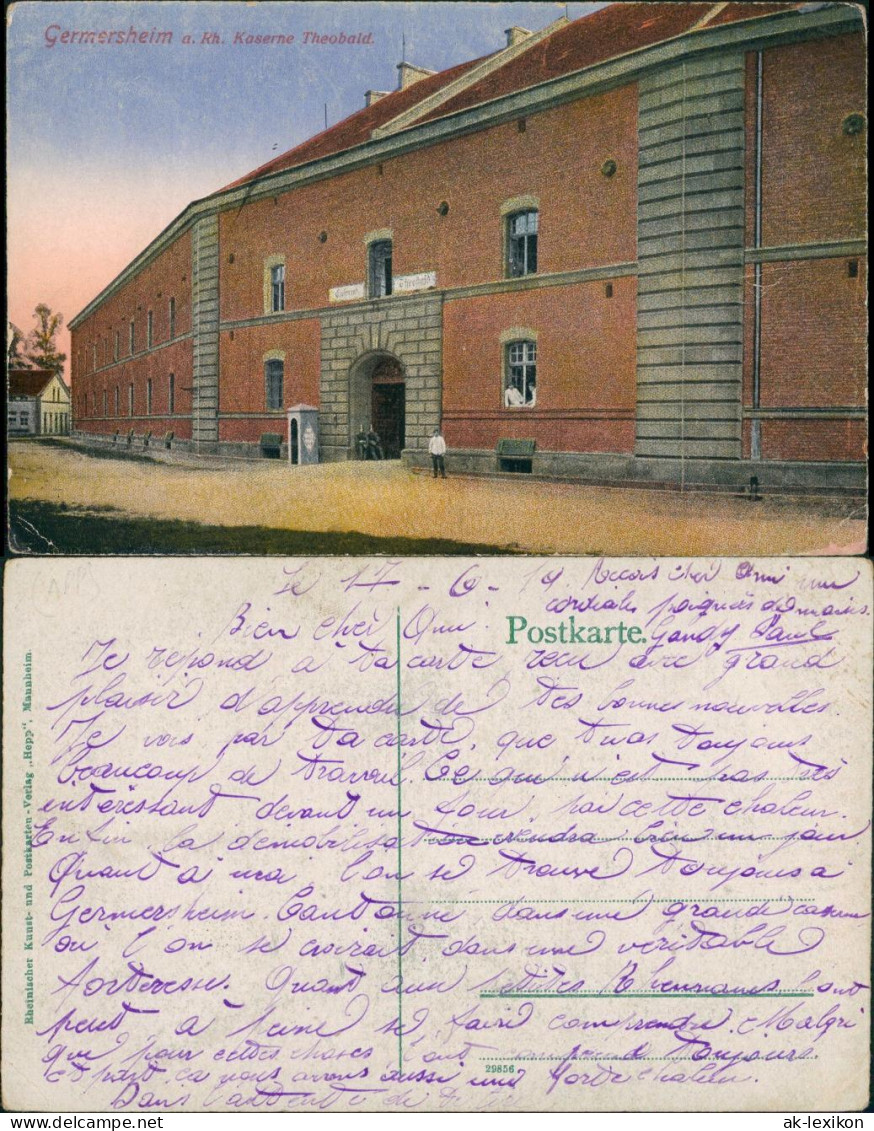 Germersheim a. Rh. Kaserne Theobald.
Le 17 - 6 - 19.
Recois cher Ami une
cordiale poignée de mains.
Gandy Paul
Bien cher Ami.
Postkarte.
Je répond à ta carte recu avec grand
plaisir d'apprendre de tes bonnes nouvelles.
Je vois par ta carte, que tu as toujours
beaucoup de travail. Ce qui n'est pas très
intéressant devant un four, par cette chaleur.
Enfin la démobilisation viendra bien un jour.
Quant à moi l'on se trouve toujours à
Germersheim. Cantonné dans une grande caserne
où l'on se croirait dans une véritable
forteresse. Quant aux petites Rhennanes, l'ont
peut à peine se faire comprendre. Malgré
que pour cettes choses l'ont comprend toujours.
et part ça nous avons aussi une forte chaleur.
Dans l'attente de te
Rheinischer Kunst- und Postkarten-Verlag „Hepp", Mannheim.
29856
ak-lexikon